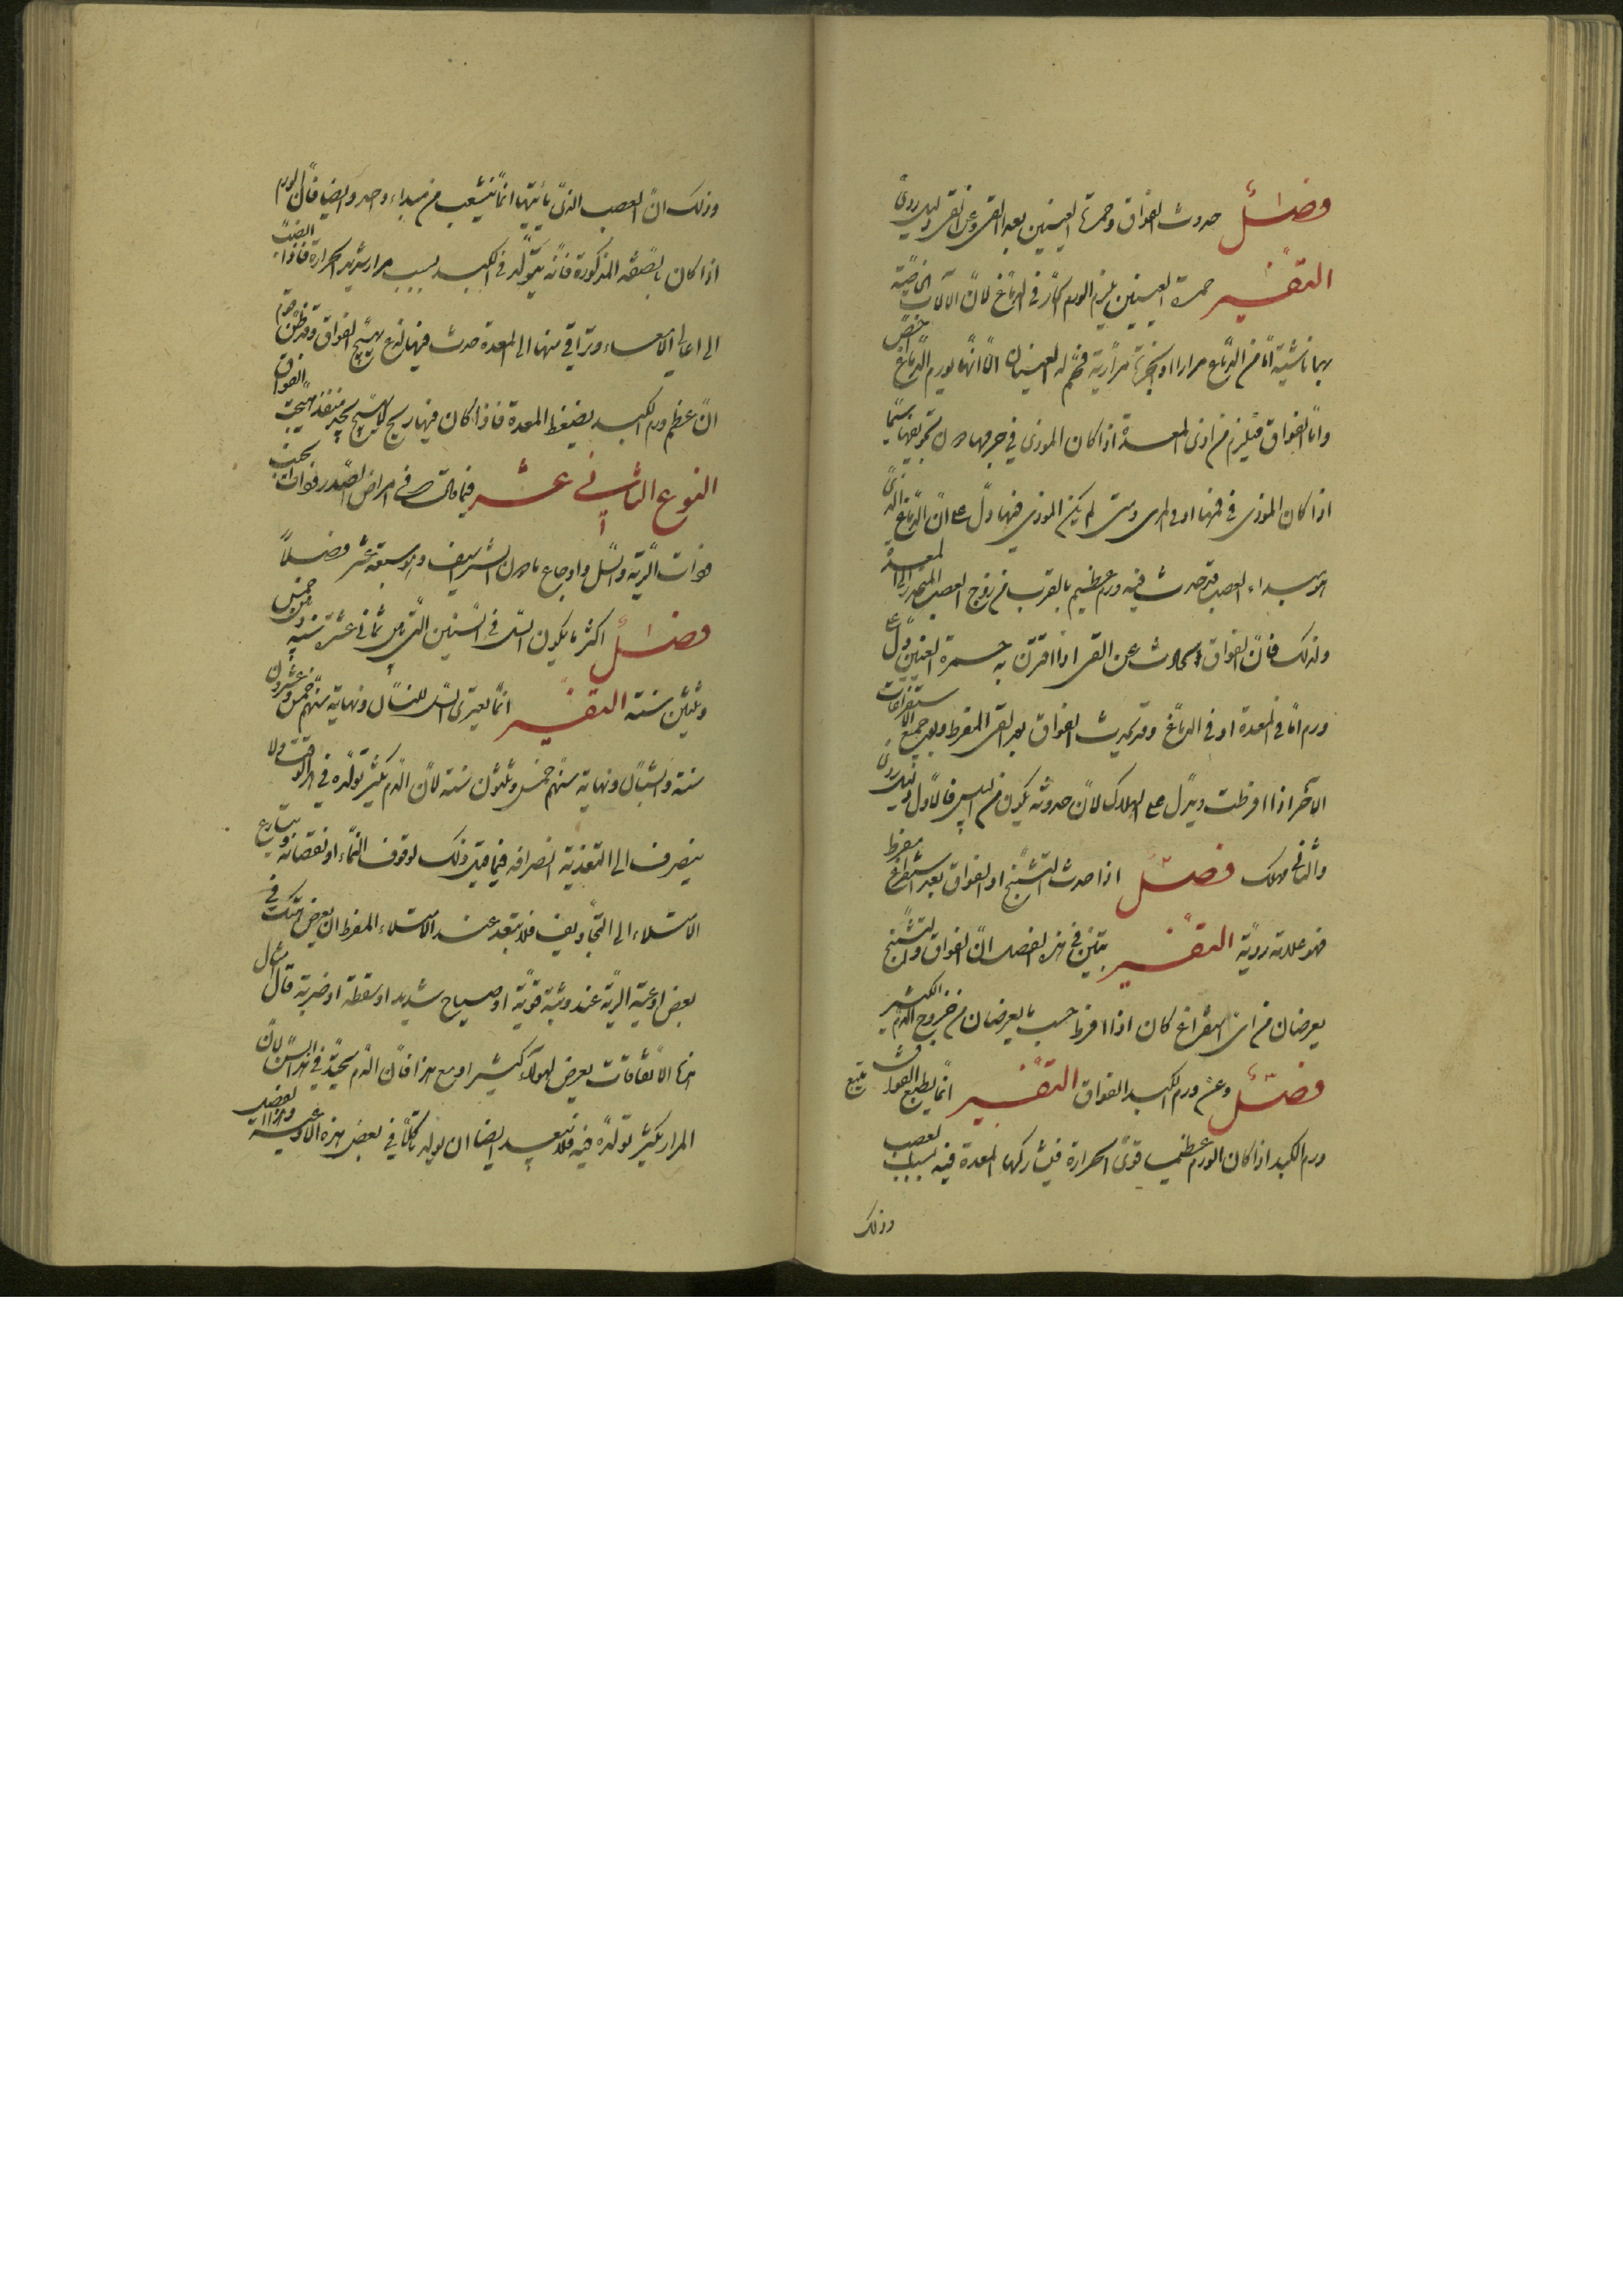 فصل حدوث الفواق وحمرة العينين بعد القئ وعن القئ دليل ردئ
التفسير حمرة العينين يلزم الورم الحار في الدماغ لان الآلات الخاصة
بها ناشئة اما من الدماغ مرارا او ابخرة مرارية فتحمر له العينان الا انها لورم الدماغ اخص
واما الفواق فيلزم من اذى المعدة اذا كان الموذى في جرمها دون تجويفها سيما
اذا كان الموذى في فمها او في المرى ومتى لم يكن الموذى فيها دل على ان الدماغ الذى
هو مبداء العصب قد حدث فيه ورم عظيم بالقرب من زوج العصب المنحدر الى المعدة
ولذلك فان الفواق الحادث عن القئ اذا اقترن به حمرة العينين دل على
ورم اما في المعدة او في الدماغ وقد يحدث الفواق بعد القئ المفرط وبعد جميع الاستفراغات
الاخر اذا افرطت ويدل على الهلاك لان حدوثه يكون من اليبس فالاول دليل ردئ
والثانى مهلك فصل اذا حدث التشنج او الفواق بعد استفراغ مفرط
فهو علامة ردية التفسير يتبين في هذه الفصل ان الفواق والتشنج
يعرضان من اى استفراغ كان اذا افرط حسب ما يعرضان من خروج الدم الكثير
فصل وعن ورم الكبد الفواق التفسير انما يتبع الفواق
ورم الكبد اذا كان الورم عظيما قوى الحرارة فيشاركها المعدة فيه بسبب العصب
وذلك
وذلك ان العصب الذى ياتيها انما يتشعب من مبداء واحد وايضا فان الورم
اذا كان بالصفة المذكورة فانه يتولد في الكبد بسببه مرار شديد الحرارة فاذا انصب
الى اعالى الامعاء وتراقى منها الى المعدة حدث فيها لذع يهيج الفواق وقد ظن قوم
ان عظم ورم الكبد يضغط المعدة فاذا كان فيها ريح لا يجد منفذ هيجت الفواق
النوع الثانى عشر فيما قالت في امراض الصدر ذوات الجنب
وذات الرية والسل واوجاع ما دون الشراسيف وهو سبعة عشر فصلا
فصل اكثر ما يكون السل في السنين التى بين ثمانى عشرة سنة وبين خمس
وثلثين سنة التفسير انما يعترى السل للفتيان ونهاية سنهم خمس وعشرون
سنة والشبان ونهاية سنهم خمس وثلثون سنة لان الدم يكثر تولده في هذا الوقت ولا
ينصرف الى التغذية انصرافه فيما قبل ذلك لوقوف النماء او نقصانه ويتسارع
الامتلاء الى التجاويف فلا يبعد عند الامتلاء المفرط ان يعرض هتك في
بعض اوعية الرية عند وثبة قوية او صياح شديد او سقطة او ضربة فان امثال
هذه الاتفاقات يعرض لهولاء كثيرا ومع هذا فان الدم يحتد في هذا السن لان
المرار يكثر تولده فيه فلا يبعد ايضا ان يولد تاكلا في بعض هذه الاوعية